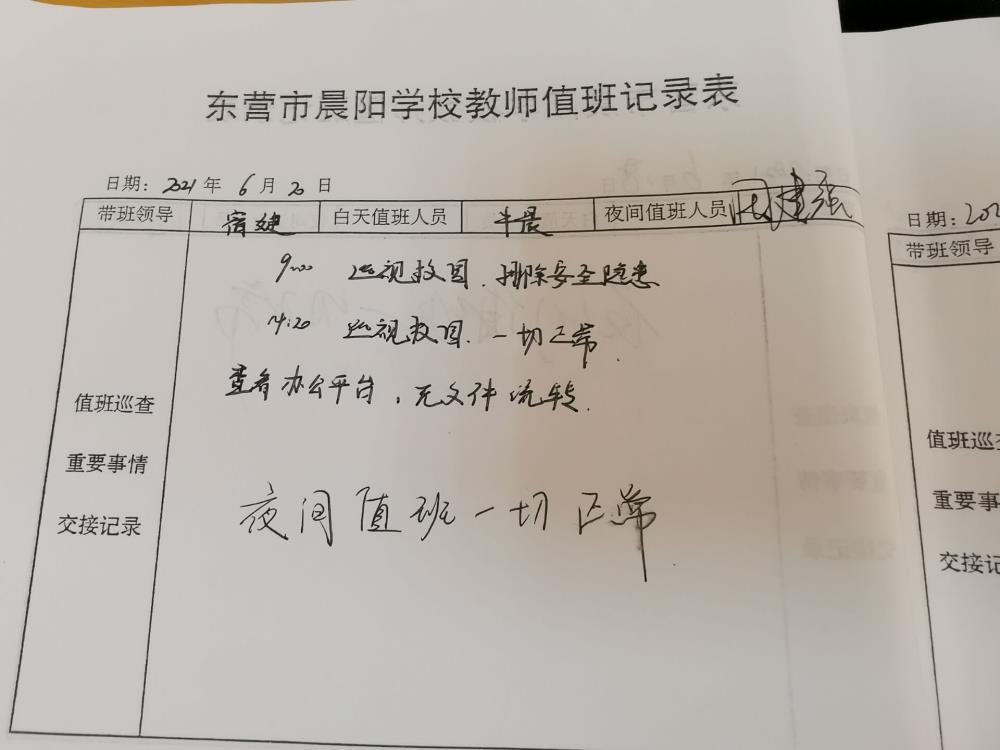 东营市晨阳学校教师值班记录表
日期：2021 年 6 月 20 日
带班领导 宿建 白天值班人员 牛晨 夜间值班人员 建强
9:00 巡视校园、排除安全隐患
14:20 巡视校园. 一切正常.
查看办公平台，无文件流转.
值班巡查
重要事情
交接记录
夜间值班一切正常
日期：202
带班领导
值班巡查
重要事
交接记